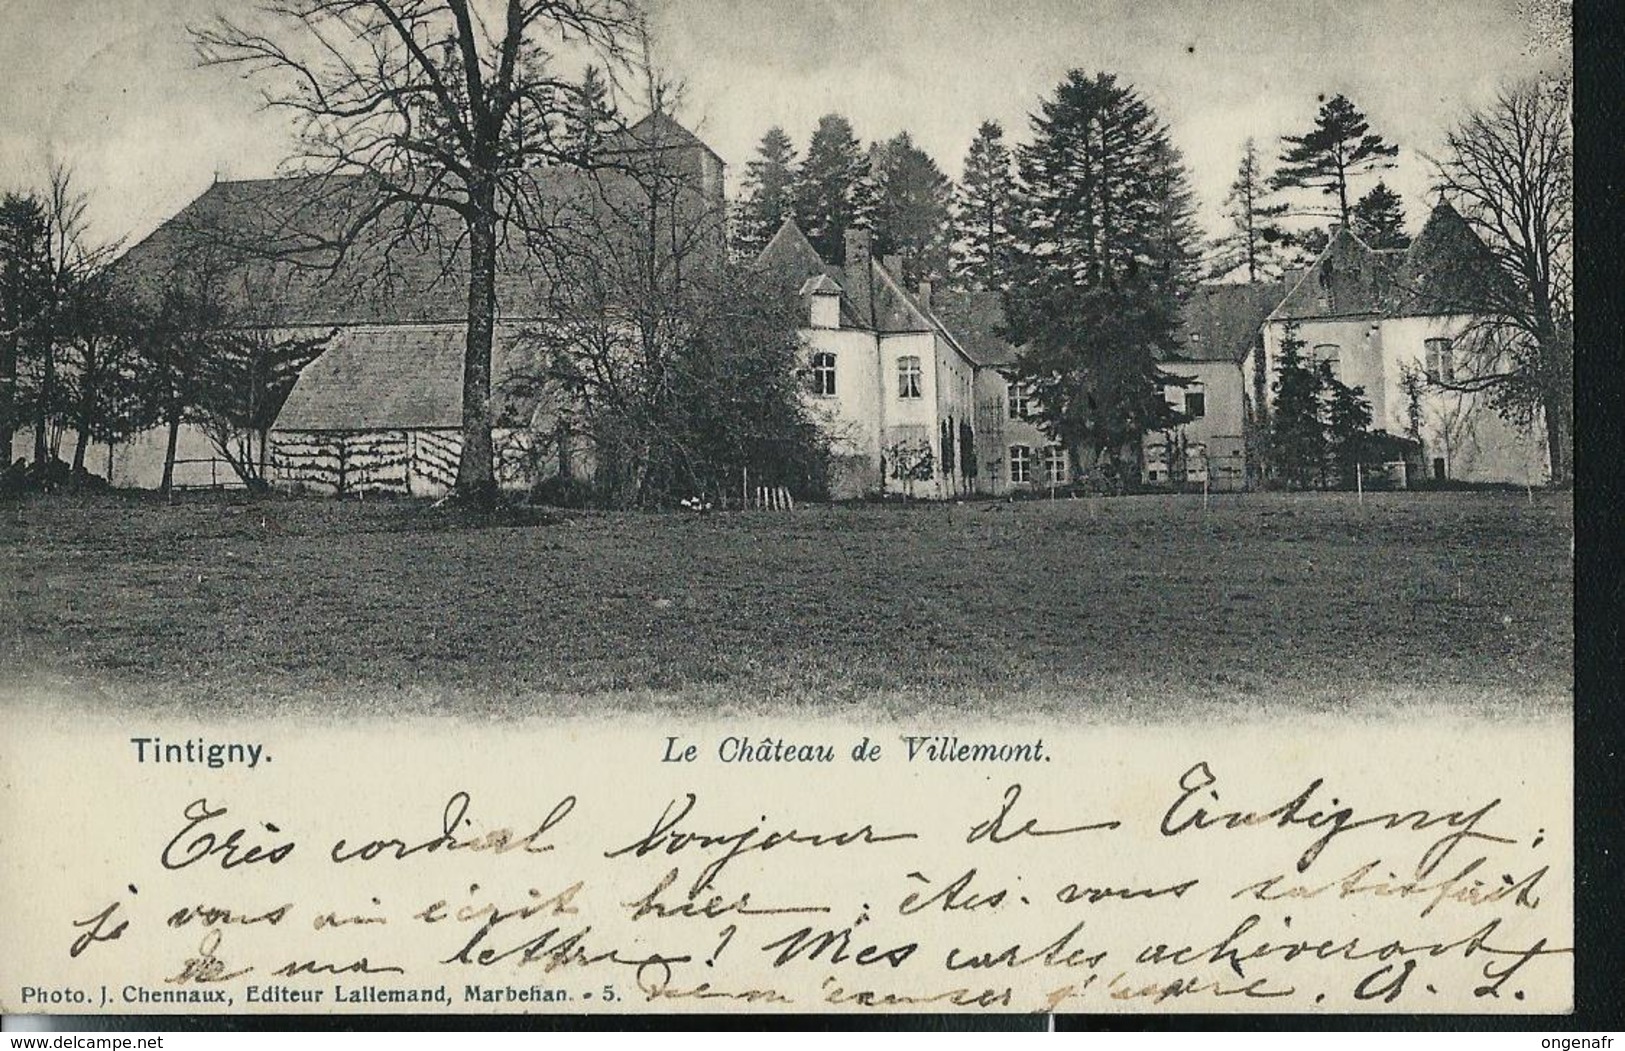 Tintigny. Le Château de Villemont.
Très cordial bonjour de Tintigny,
je vous ai écrit hier ; êtes-vous satisfait
de ma lettre ! Mes cartes achiveront
Photo. J. Chennaux, Editeur Lallemand, Marbehan. - 5. de m'excuser j'espère. A. L.
www.delcampe.net ongenafr